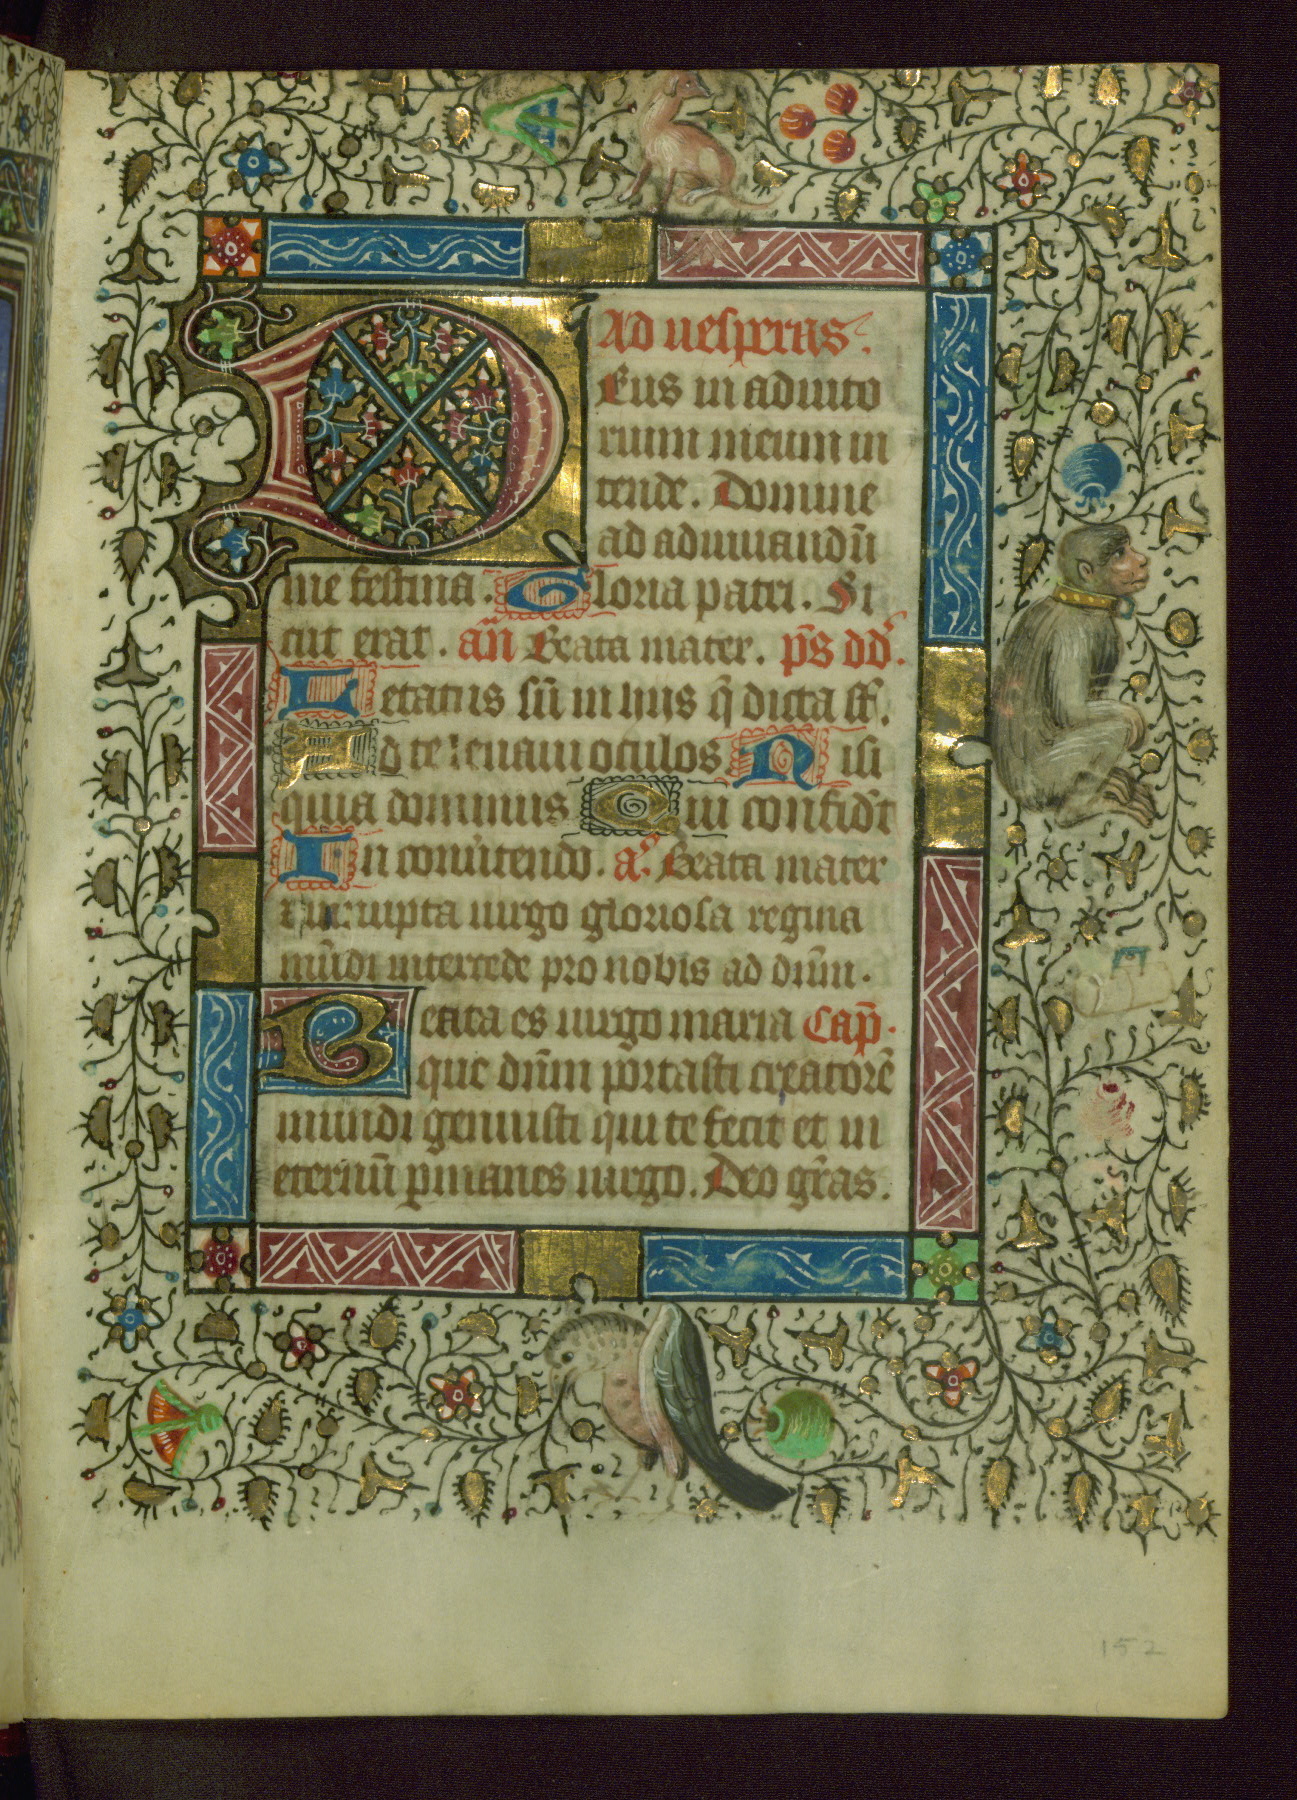 Ad uesperas.
Deus in adiuto
rium meum in
tende. Domine
ad adiuuandū
me festina. Gloria patri. Si
cut erat. añ Beata mater. p̄s dd̄.
Letatus sū in hiis q̄ dicta sſ.
Ad te leuaui oculos Nisi
quia dominus Qui confidūt
In conuertendo. a. Beata mater
et innupta uirgo gloriosa regina
mūdi intercede pro nobis ad dn̄m.
Beata es uirgo maria Cap̄.
que dn̄m portasti creatorē
mundi genuisti qui te fecit et in
eternū pmanes uirgo. Deo grās.
152